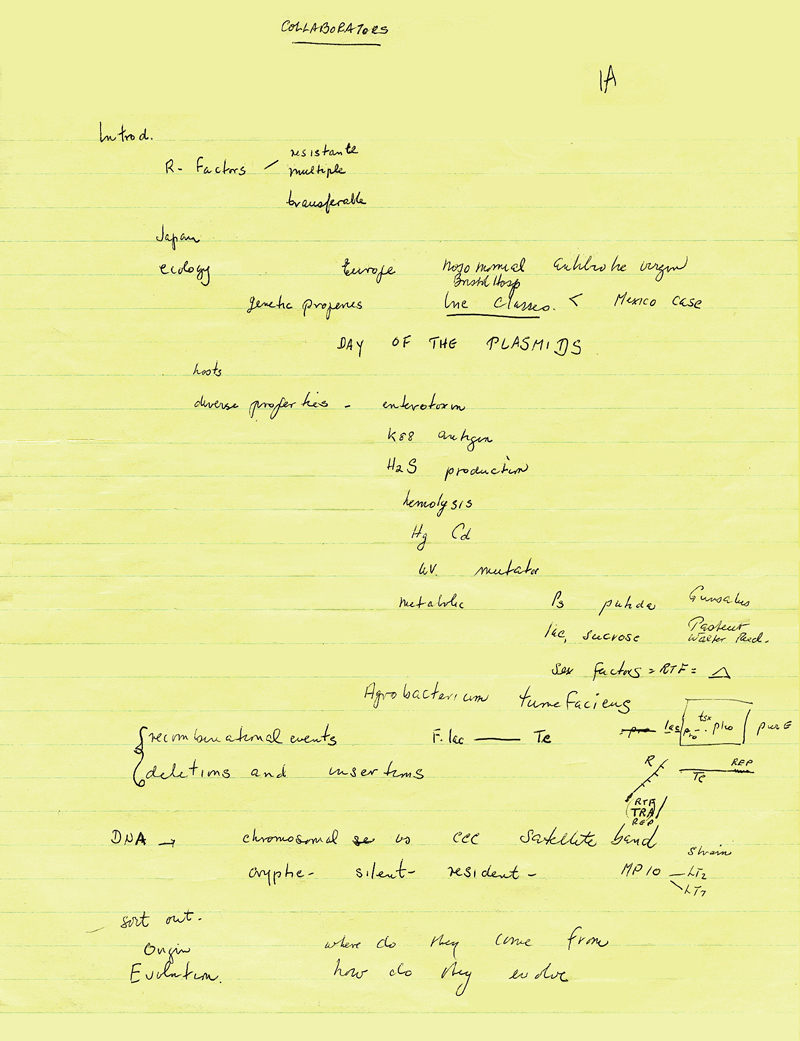 COLLABORATORS
1A
Introd.
R- Factors / resistante
multiple
transferable
Japan
ecology Europe antibiotic virgin
Bristol Hosp
genetic properies Inc Classes. < Mexico case
DAY OF THE PLASMIDS
hosts
diverse properties - enterotoxin
K88 antigen
H2S production
hemolysis
Hg Cd
uv. mutator
metabolic Ps putida Gunsalus
lac, sucrose Pasteur
Walter Reed.
sex factors = RTF = △
Agrobacterium tumefaciens
{ recombinational events F. lac —— Tc pro lac pro tsx pho purE
deletions and insertions
R REP
Tc
(RTF
TRA
REP)
DNA → chromosomal vs CCC satellite band
cryptic - silent - resident - MP10 strain
LT2
LT7
sort out.
Origin where do they come from
Evolution. how do they evolve